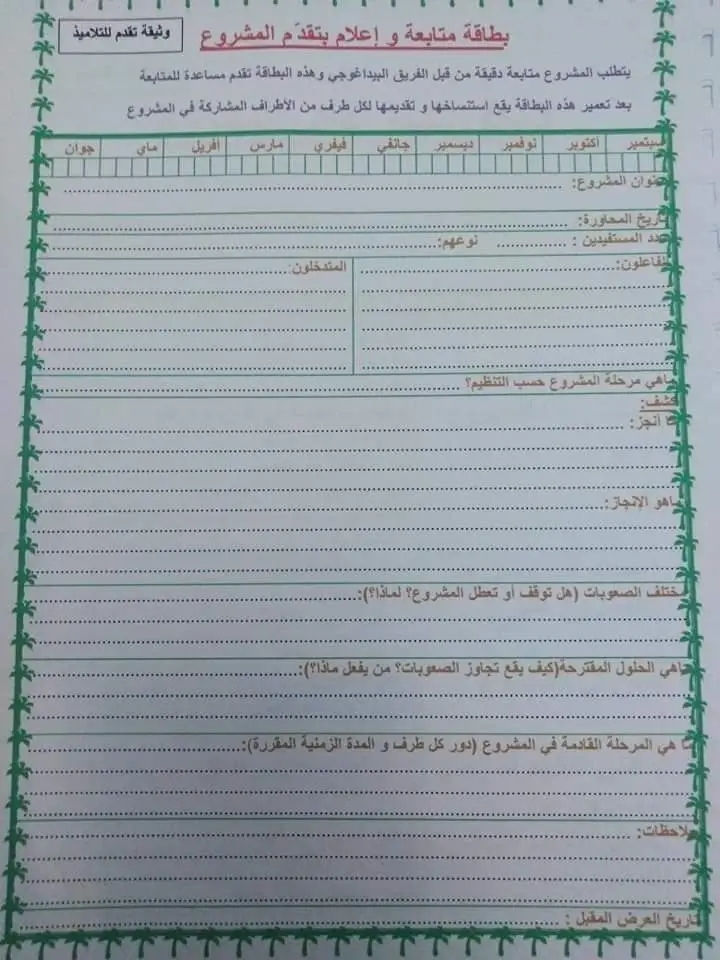 وثيقة تقدم للتلاميذ
بطاقة متابعة و إعلام بتقدّم المشروع
يتطلب المشروع متابعة دقيقة من قبل الفريق البيداغوجي وهذه البطاقة تقدم مساعدة للمتابعة
بعد تعمير هذه البطاقة يقع استنساخها و تقديمها لكل طرف من الأطراف المشاركة في المشروع
سبتمبر أكتوبر نوفمبر ديسمبر جانفي فيفري مارس أفريل ماي جوان
عنوان المشروع:
تاريخ المحاورة:
عدد المستفيدين : نوعهم:
الفاعلون: المتدخلون
ماهي مرحلة المشروع حسب التنظيم؟
كشف:
ما أنجز:
ماهو الإنجاز:
مختلف الصعوبات (هل توقف أو تعطل المشروع؟ لماذا؟):
ماهي الحلول المقترحة(كيف يقع تجاوز الصعوبات؟ من يفعل ماذا؟):
ما هي المرحلة القادمة في المشروع (دور كل طرف و المدة الزمنية المقررة):
ملاحظات:
تاريخ العرض المقبل :